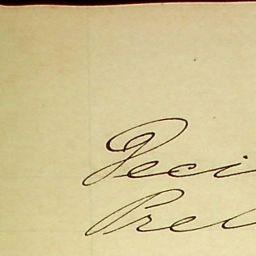 Deci
Prel